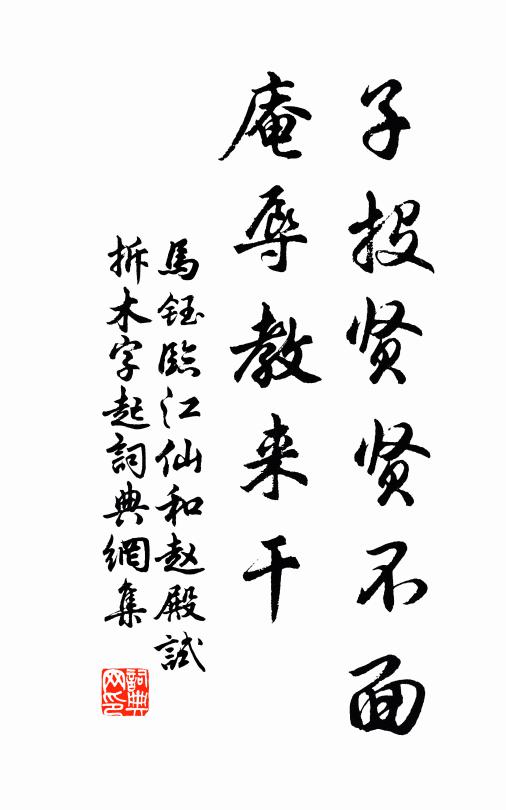 子投贤贤不面
庵辱教来干
馬鈺臨江仙和赵殿試
拆木字起詞典網集
詞典
网印